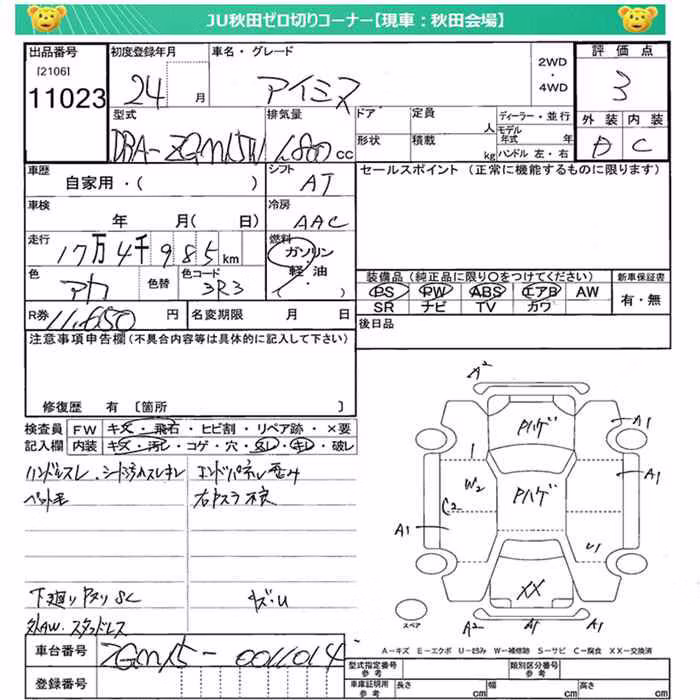 JU秋田ゼロ切りコーナー【現車：秋田会場】
出品番号
[2106]
11023
初度登録年月
24 月
車名・グレード
アイシス
2WD
・
4WD
評価点
3
型式
DBA-ZGM15W
排気量
1,800 cc
ドア
形状
定員 人
積載 kg
ディーラー・並行
モデル年式 年
ハンドル 左・右
外装 内装
D C
車歴
自家用・( )
シフト
AT
セールスポイント (正常に機能するものに限ります)
車検
年 月( 日)
冷房
AAC
走行
17万4千985km
燃料
ガソリン
軽・油
( )
色
アカ
色替
色コード
3R3
装備品 (純正品に限り○をつけてください)
PS PW ABS エアB AW
SR ナビ TV カワ
新車保証書
有・無
R券 11,650 円
名変期限 月 日
後日品
注意事項申告欄 (不具合内容等は具体的に記入して下さい)
修復歴 有 〔箇所 〕
検査員
記入欄
FW キズ・飛石・ヒビ割・リペア跡・×要
内装 キズ・汚レ・コゲ・穴・スレ・キレ・破レ
ハンドルスレ、シート
エンドパネル歪み
ペット毛
下廻り サビ SC
キズ・U
外AW・スタッドレス
車台番号 ZGM15-0011014
登録番号
A2
Pハゲ
A1
1
W2
Pハゲ
A1
C2
A1
U1
XX
スペア
A2 A1 A1
A－キズ E－エクボ U－凹み W－補修跡 S－サビ C－腐食 XX－交換済
型式指定番号
参考
類別区分番号
参考
車庫証明用
参考
長さ cm
幅 cm
高さ cm